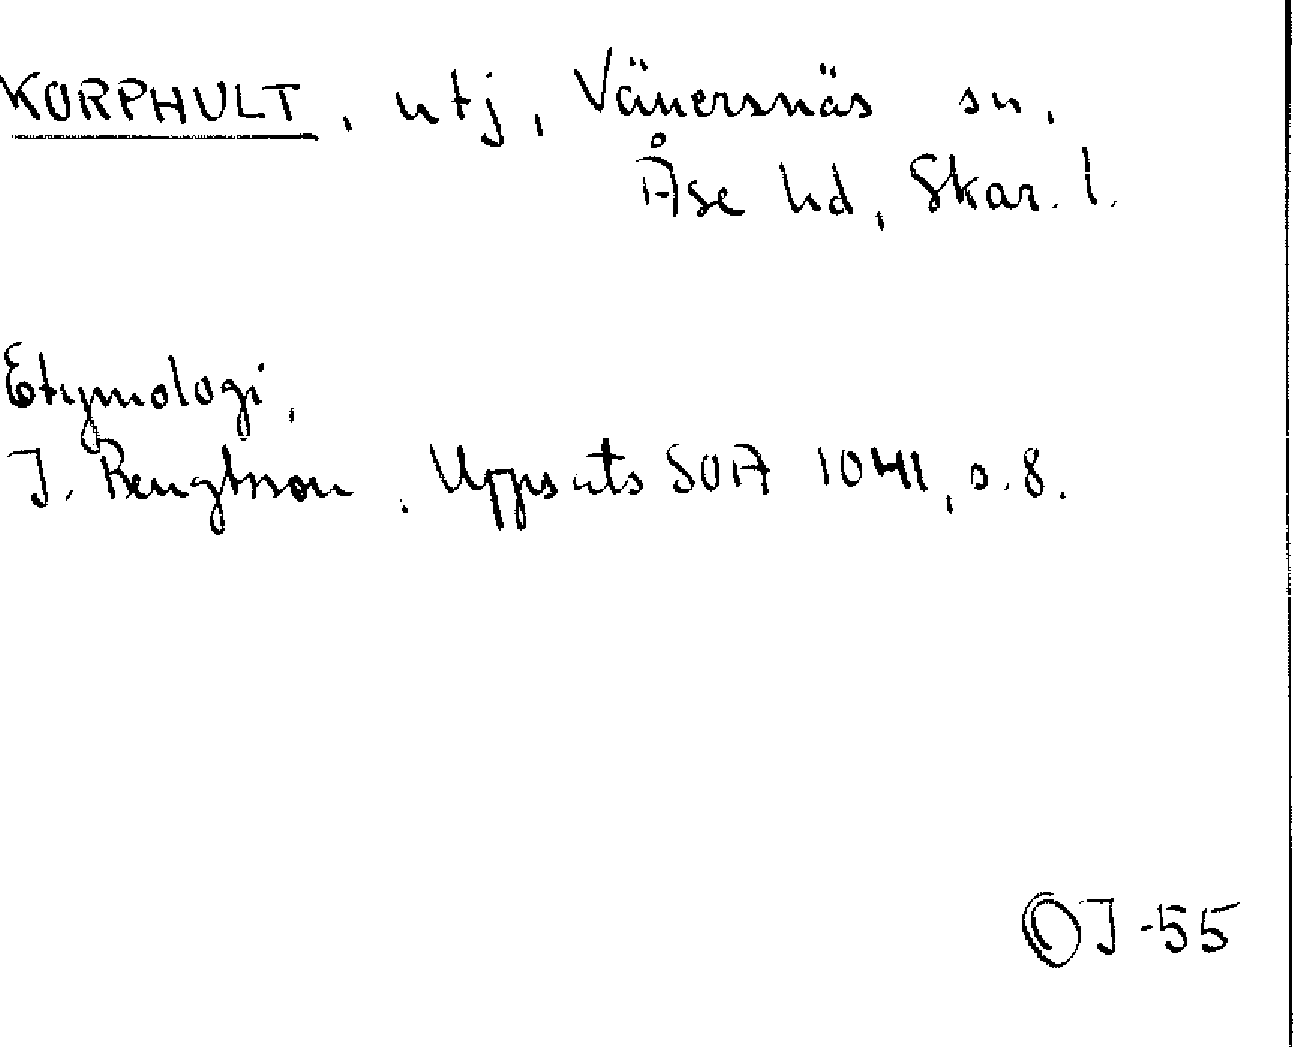 KORPHULT, utj, Vänersnäs sn,
Åse hd, Skar. l.
Etymologi.
J. Bengtsson. Uppsats SOA 1041, s. 8.
OJ-55